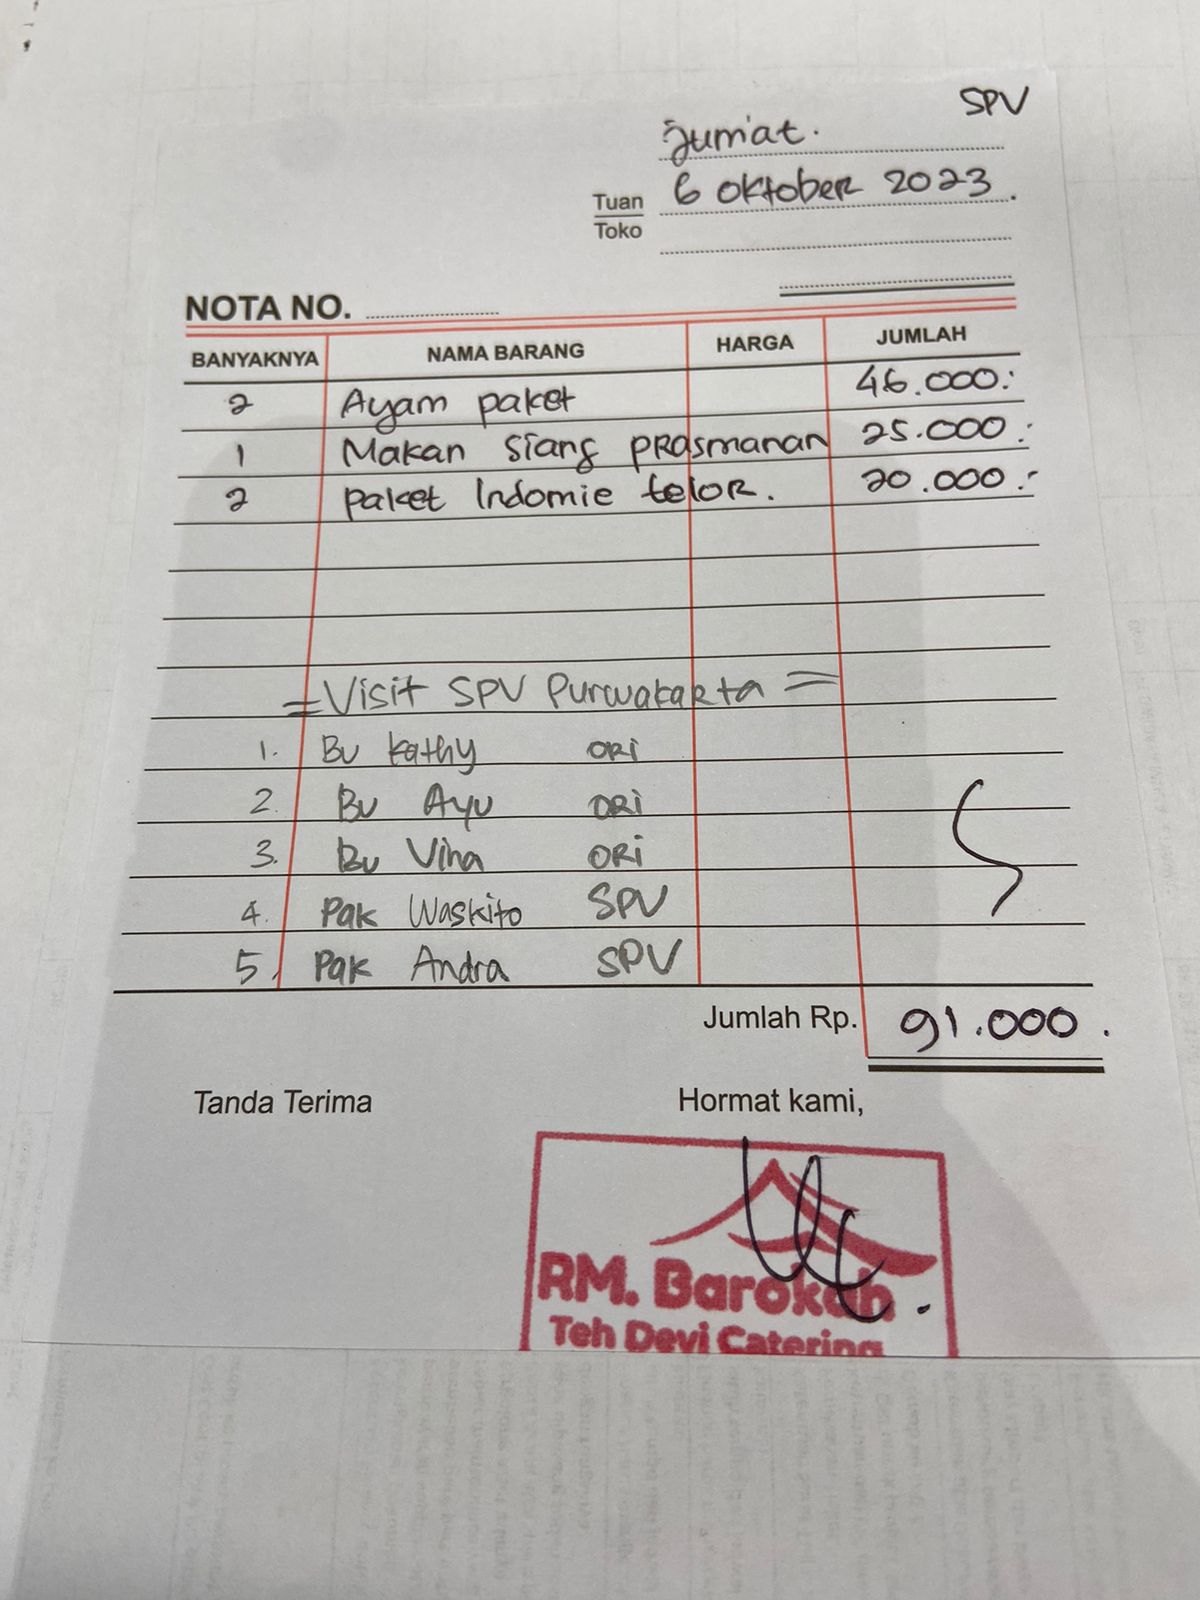 SPV
Jum'at.
Tuan 6 Oktober 2023
Toko
NOTA NO.
BANYAKNYA NAMA BARANG HARGA JUMLAH
2 Ayam paket 46.000:-
1 Makan siang prasmanan 25.000:-
2 paket Indomie telor. 20.000:-
= Visit SPV Purwakarta =
1. Bu Kathy ORI
2. Bu Ayu ORI
3. Bu Vina ORI
4. Pak Waskito SPV
5. Pak Andra SPV
Jumlah Rp. 91.000.
Tanda Terima Hormat kami,
RM. Barokah
Teh Devi Catering